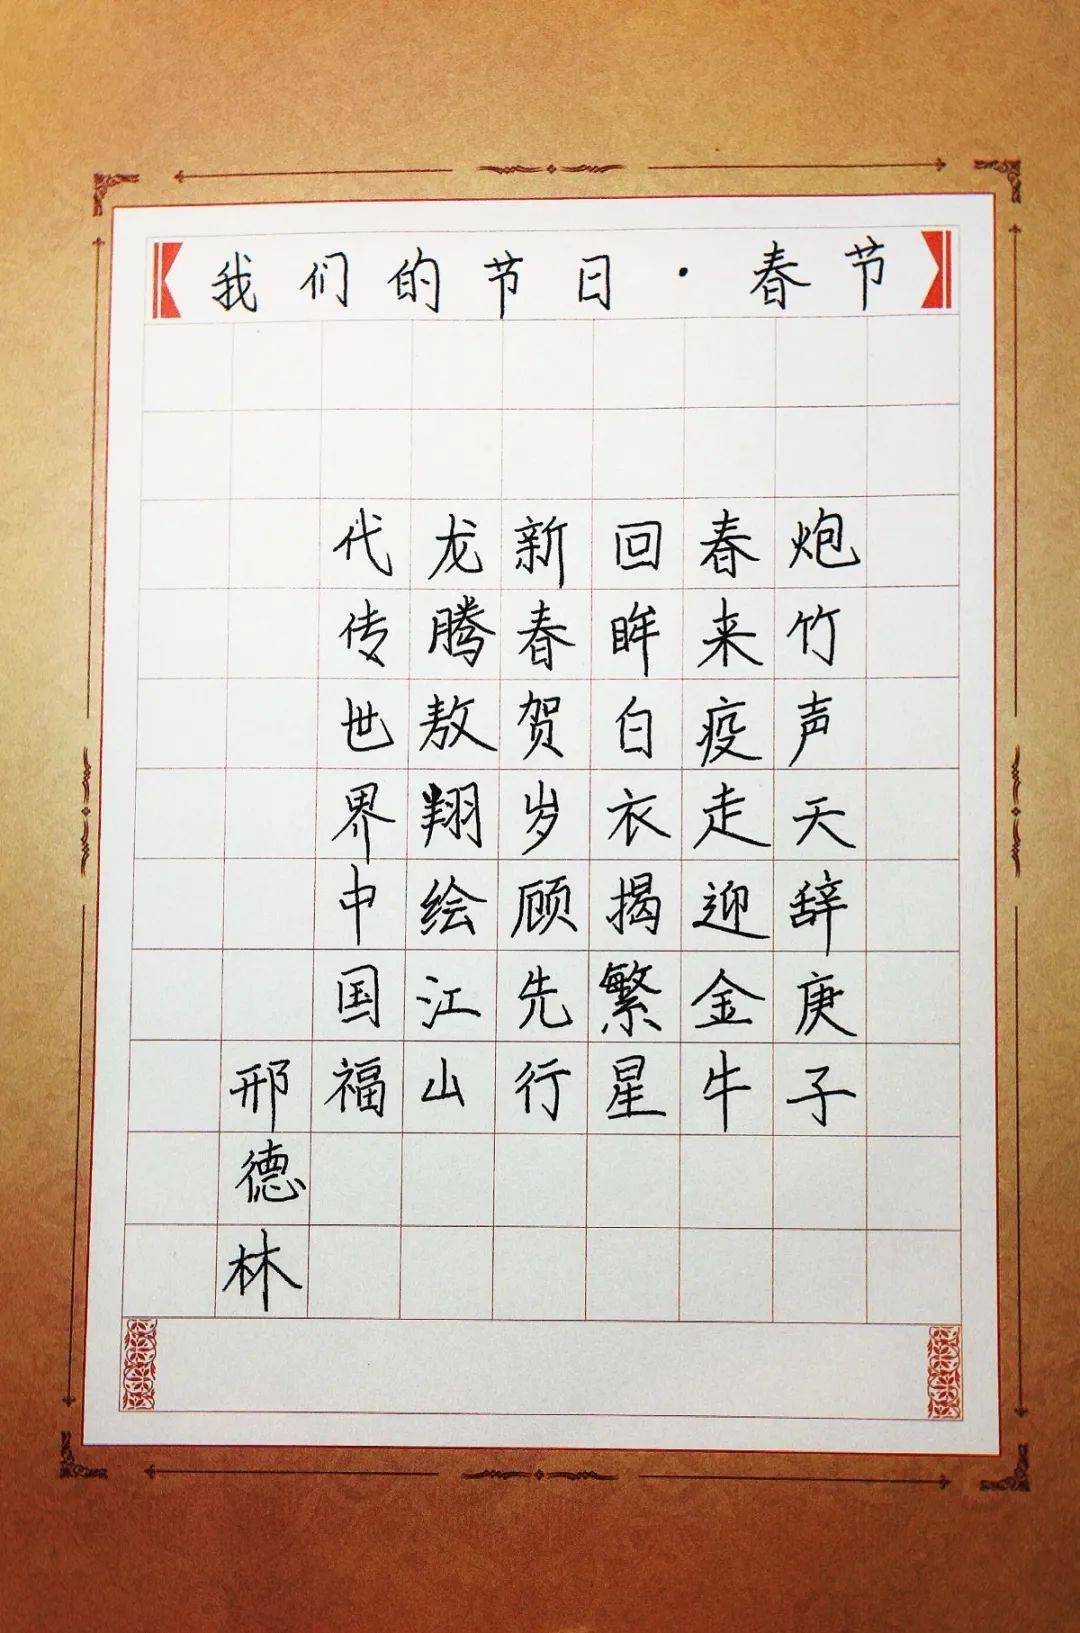 我们的节日·春节
炮竹声天辞庚子
春来疫走迎金牛
回眸白衣揭繁星
新春贺岁顾先行
龙腾敖翔绘江山
代传世界中国福
邢德林